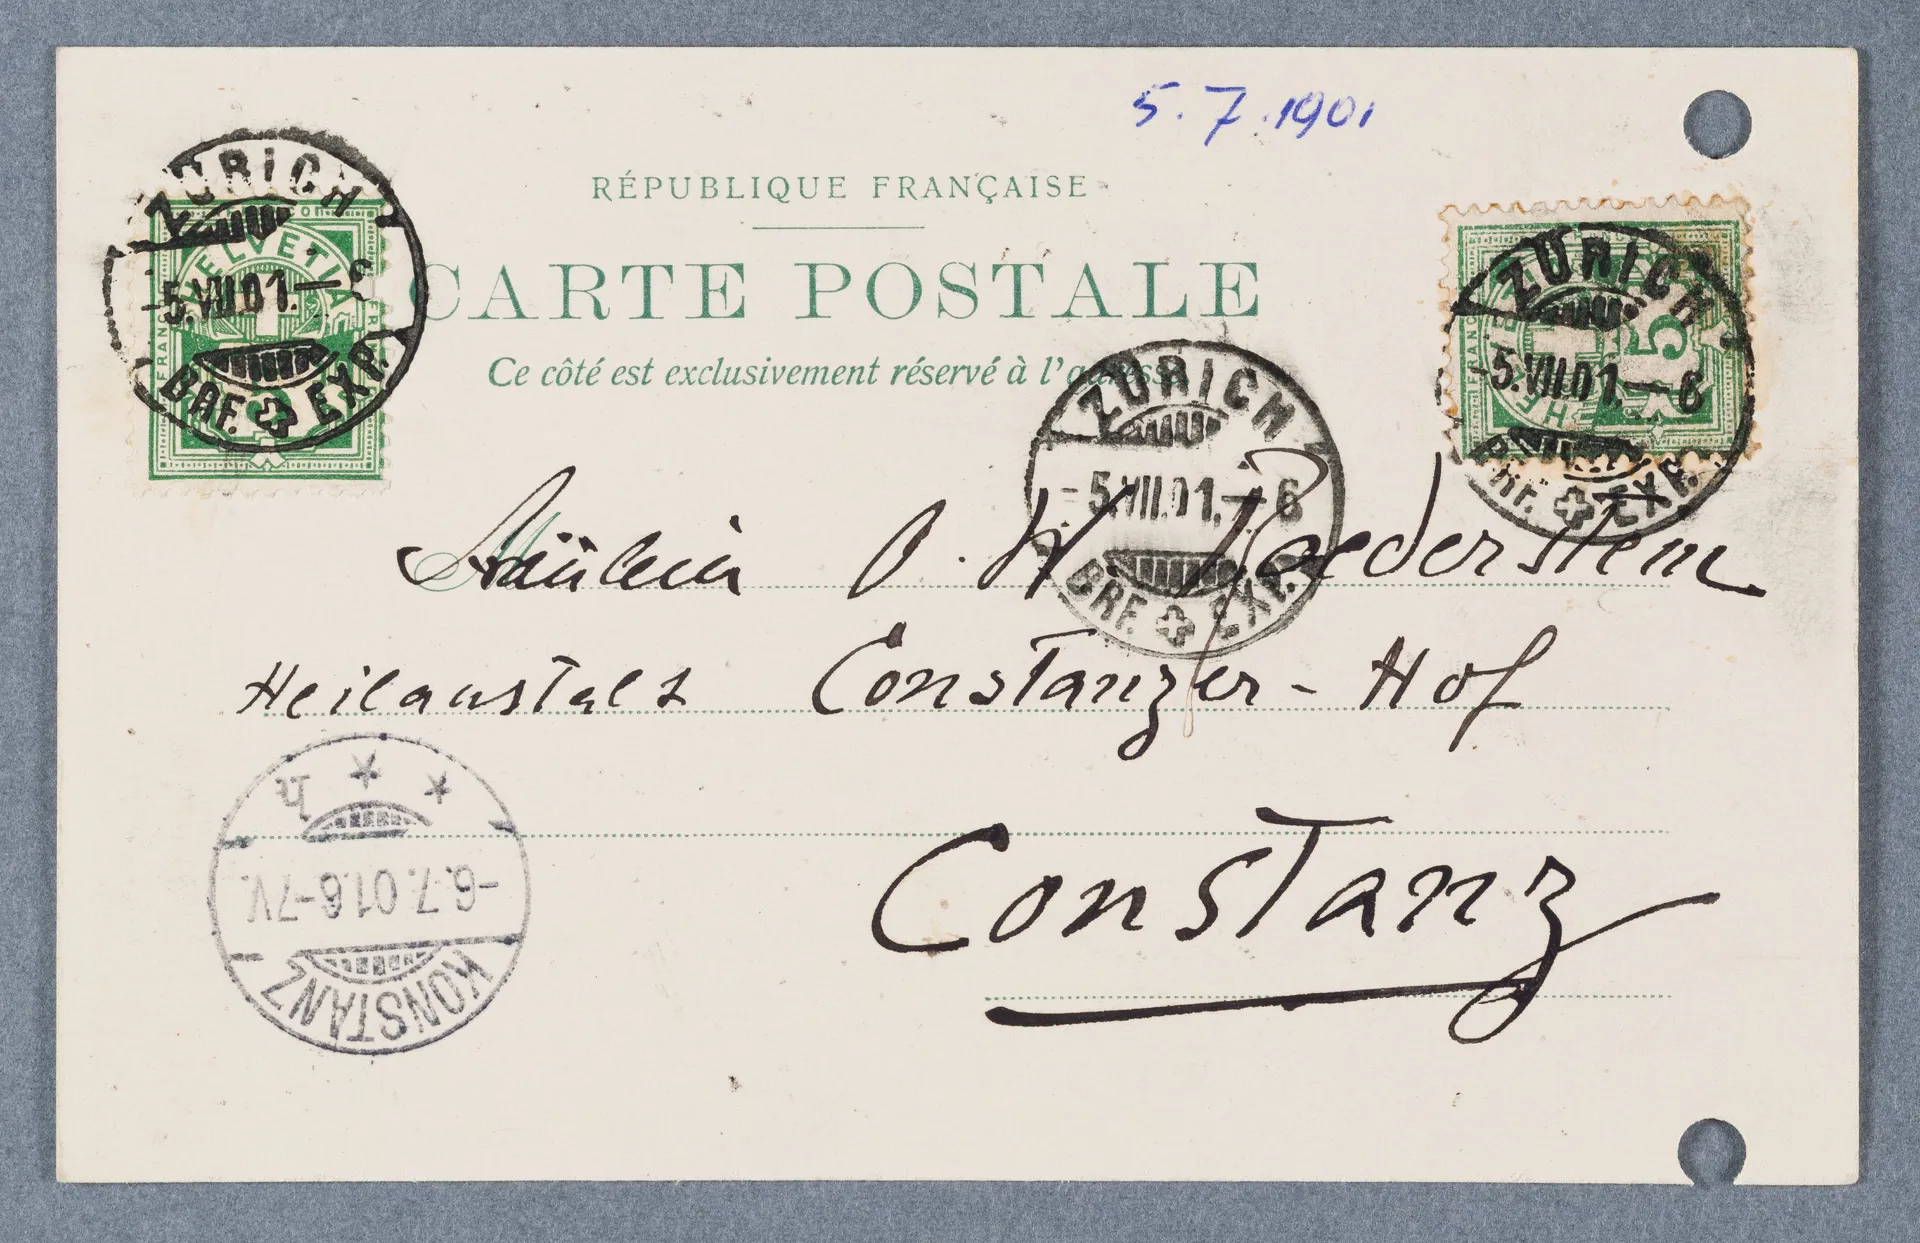 5.7.1901
RÉPUBLIQUE FRANÇAISE
CARTE POSTALE
Ce côté est exclusivement réservé à l'adresse
ZÜRICH
-5.VII.01.-6
BRF. EXP.
HELVETIA
FRANCO
ZÜRICH
-5.VII.01.-6
BRF. EXP.
ZÜRICH
-5.VII.01.-6
BRF. EXP.
5
FRANCO
Fräulein O. W. Roederstein
Heilanstalt Constanzer-Hof
Constanz
KONSTANZ
-6.7.01.6-7V.
* * h